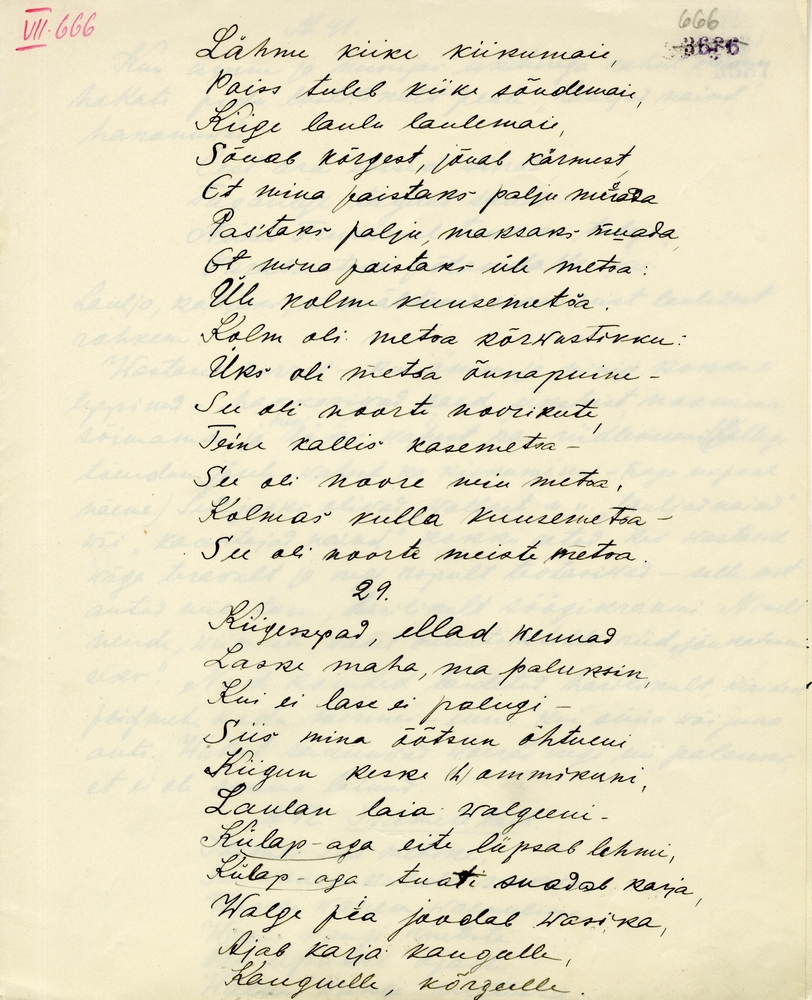 VII. 666
666
3686
Lähme kiike kiikumaie,
Poiss tuleb kiike sõudemaie,
Kiige laulu laulemaie,
Sõuab kõrgest, jõuab kärmest,
Et mina paistaks palju
Pastaks palju, maksaks muada,
Et mina paistaks üle metsa:
Üle kolme kuusemetsa.
Kolm oli metsa kõrwustikku:
Üks oli metsa õunapuine –
See oli noorte noorikute,
Teine kallis kasemetsa –
See oli noore neiu metsa,
Kolmas kulla kuusemetsa –
See oli noorte meiste metsa.
29.
Kiigessepad, ellad wennad
Laske maha, ma paluksin,
Kui ei lase ei palugi –
Siis mina õõtsun õhtueni
Kiigun keske (h)ommikuni,
Laulan laia walgeeni –
Külap-aga eite lüpsab lehmi,
Külap-aga tuate suadab karja,
Walge pea joodab wasika,
Ajab karja kaugeelle,
Kauguelle, kõrgeelle.